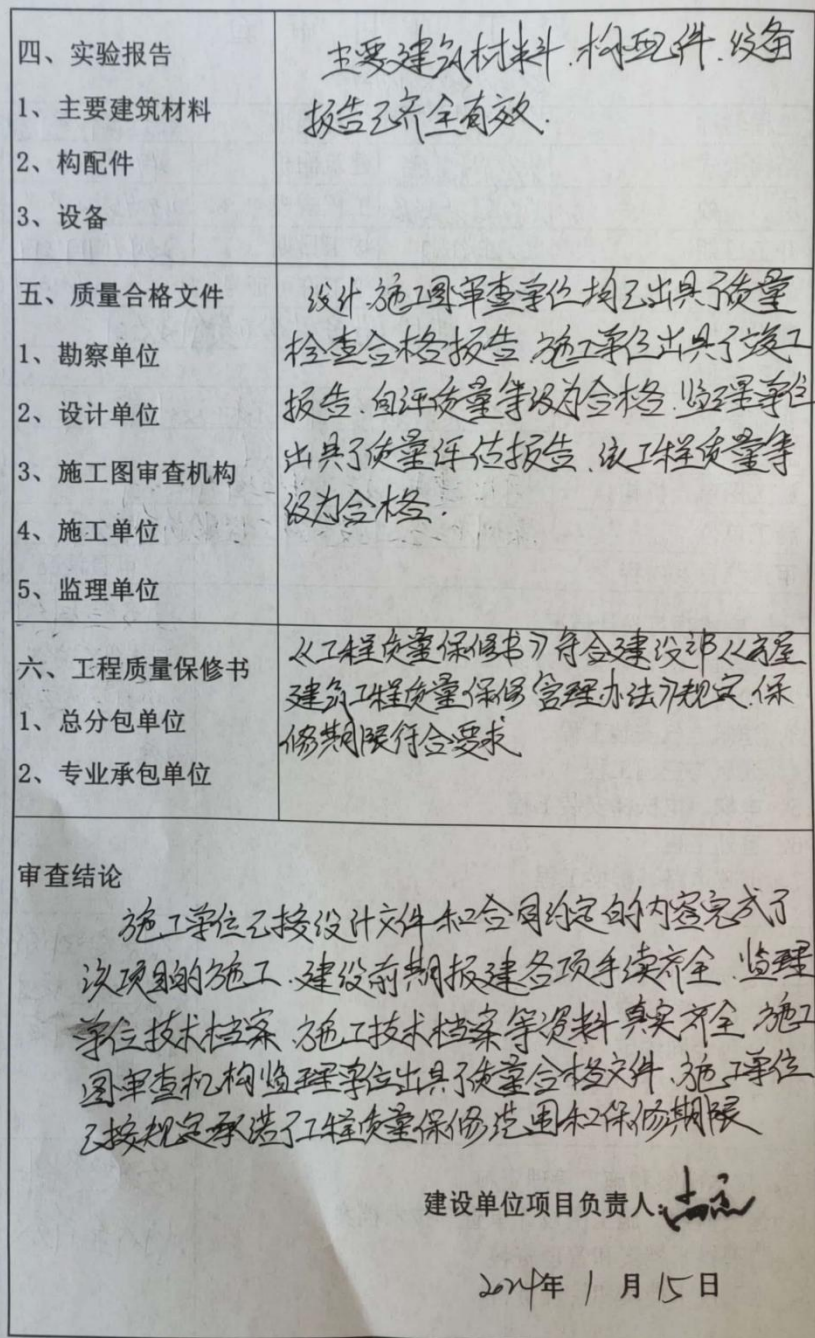 四、实验报告
1、主要建筑材料
2、构配件
3、设备
主要建筑材料、构配件、设备
报告已齐全有效.
五、质量合格文件
1、勘察单位
2、设计单位
3、施工图审查机构
4、施工单位
5、监理单位
设计、施工图审查单位均已出具了质量
检查合格报告、施工单位出具了竣工
报告、自评质量等级为合格、监理单位
出具了质量评估报告、该工程质量等
级为合格.
六、工程质量保修书
1、总分包单位
2、专业承包单位
《工程质量保修书》符合建设部《房屋
建筑工程质量保修管理办法》规定、保
修期限符合要求
审查结论
施工单位已按设计文件和合同约定的内容完成了
该项目的施工、建设前期报建各项手续齐全、监理
单位技术档案、施工技术档案等资料真实齐全、施工
图审查机构监理单位出具了质量合格文件、施工单位
已按规定承诺了工程质量保修范围和保修期限
建设单位项目负责人:
2024年 1 月 15 日